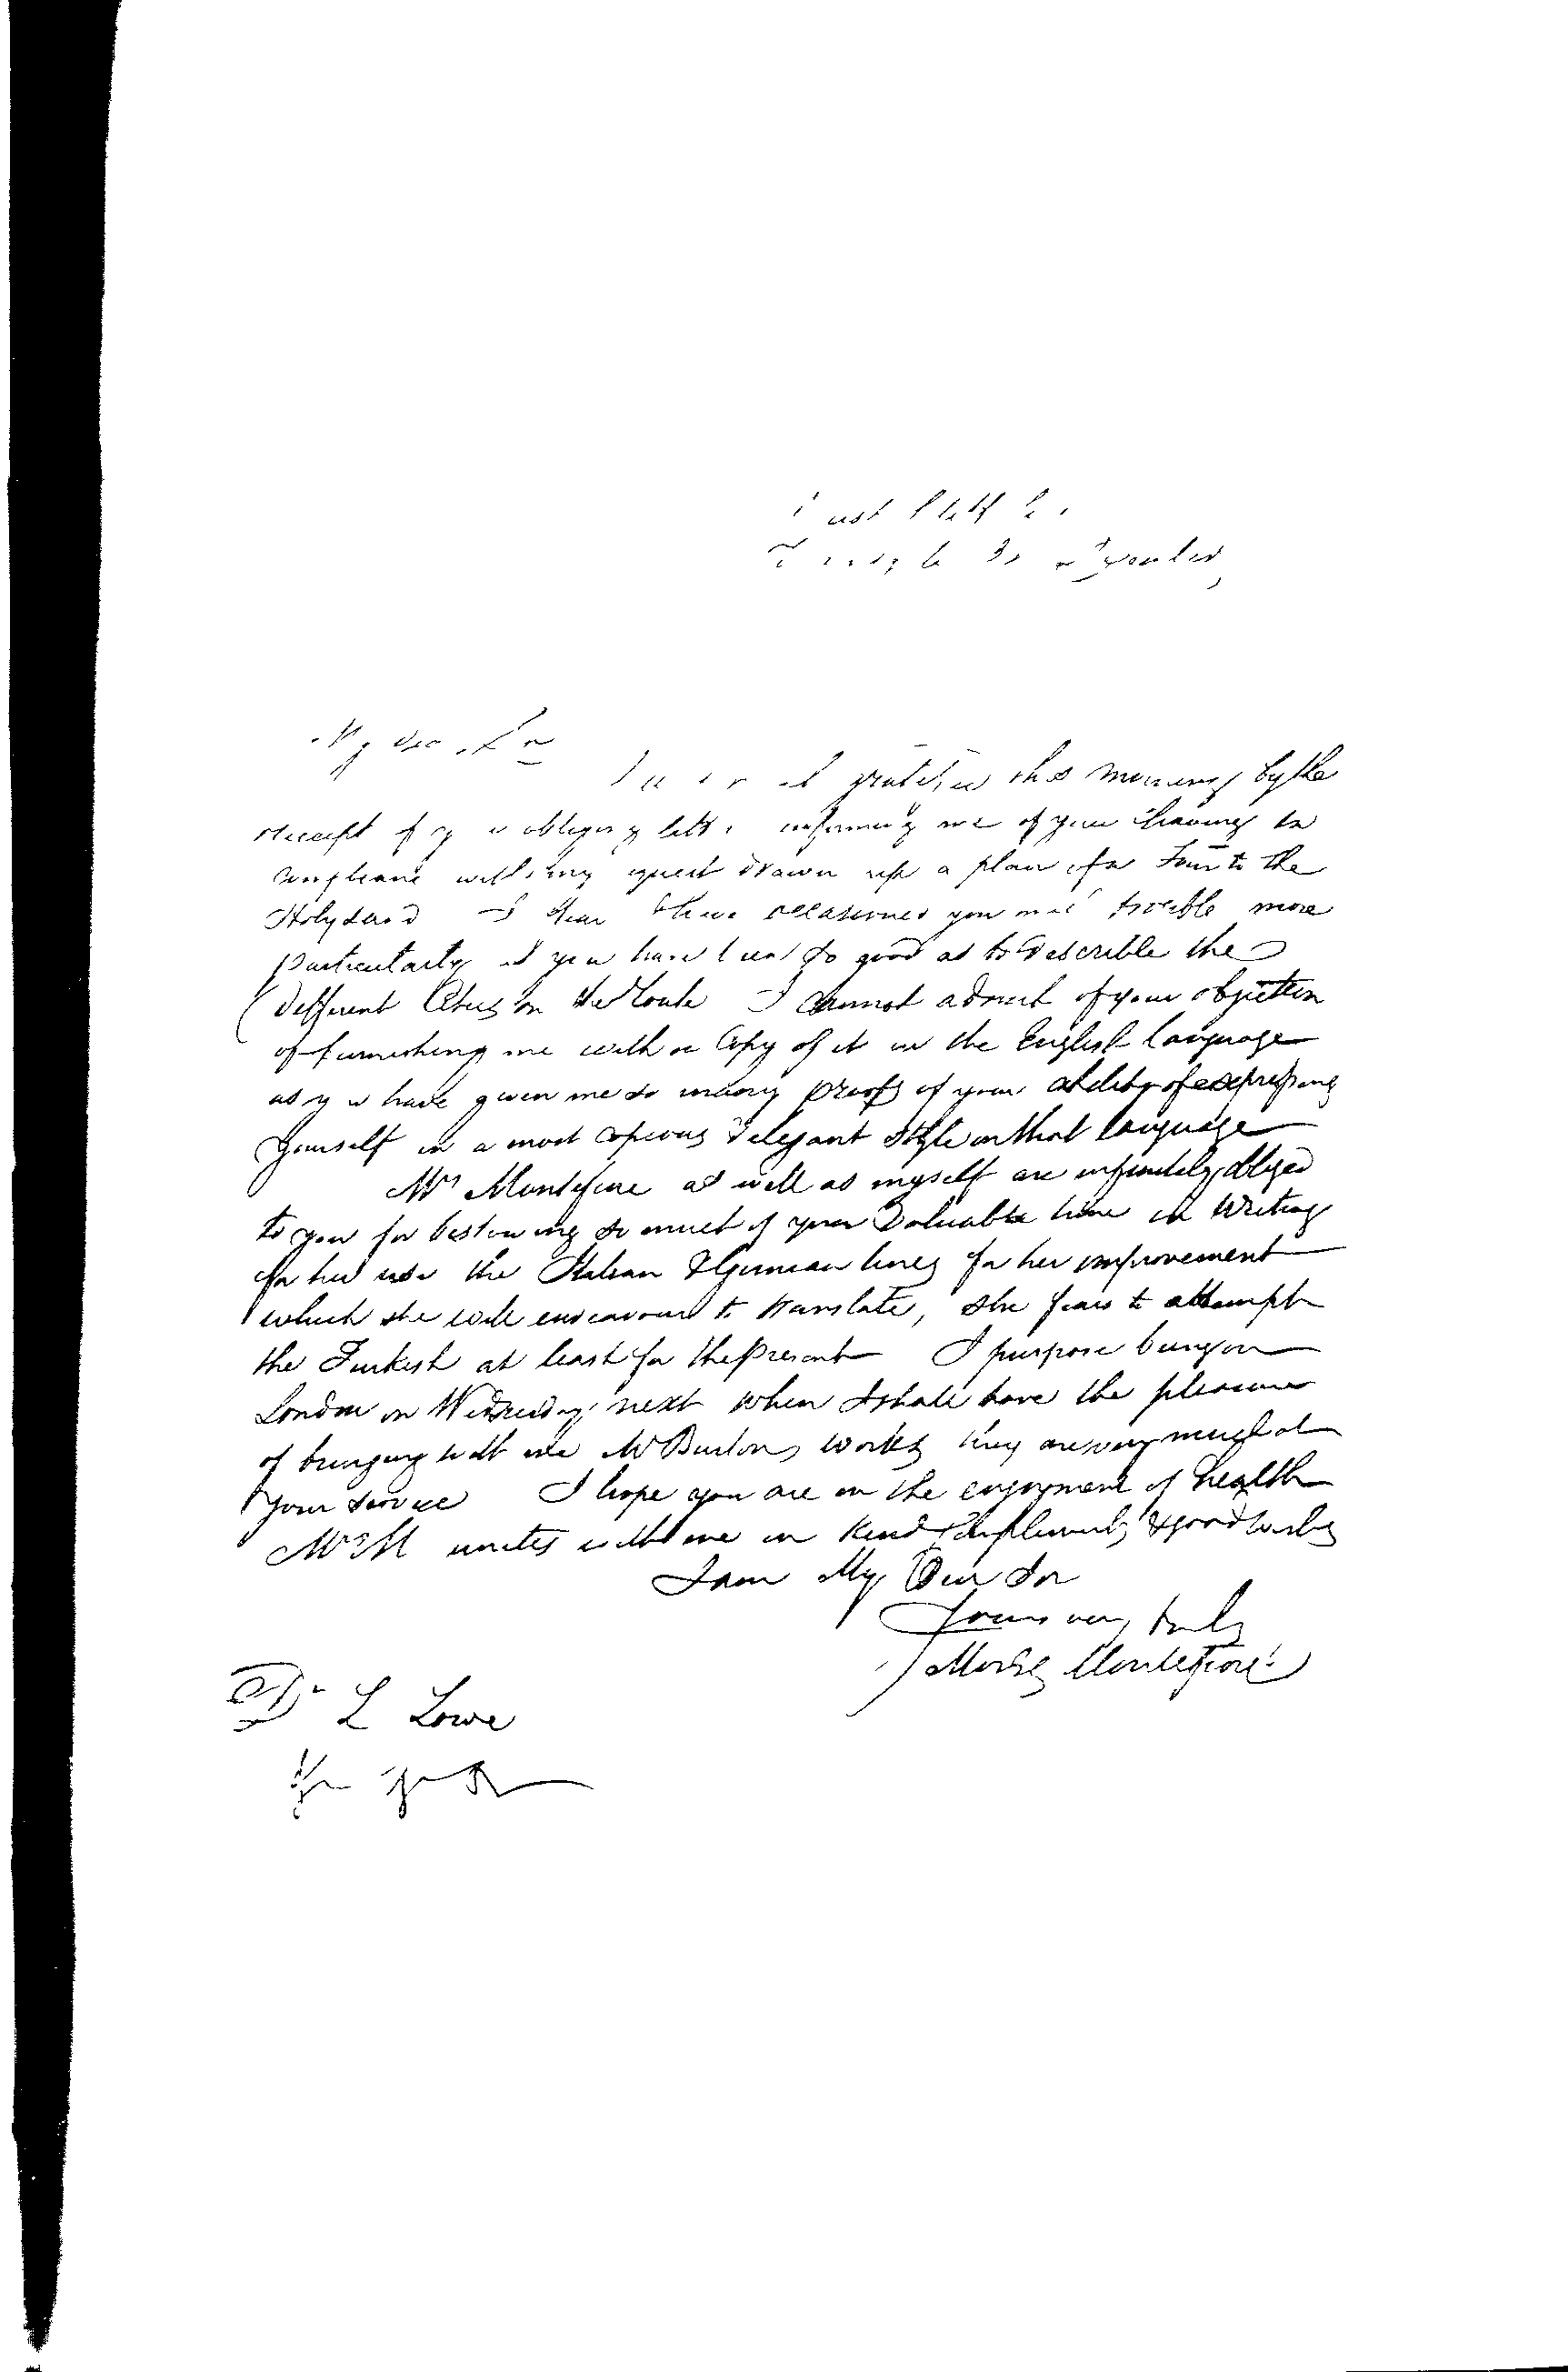 My dear Sir
gratified this morning by the
receipt of your obliging letter informing me of your having in
compliance with my request drawn up a plan of a Tour to the
Holy Land I fear I have occasioned you much trouble more
particularly as you have been so good as to describe the
different Cities on the Route I cannot admit of your objection
of furnishing me with a Copy of it in the English language
as you have given me so many proofs of your ability of expressing
yourself in a most copious & elegant style in that language
Mrs Montefiore as well as myself are infinitely obliged
to you for bestowing so much of your valuable time in writing
for her use the Italian & German lines for her improvement
which she will endeavour to translate, she fears to attempt
the Turkish at least for the present I purpose being in
London on Wednesday next when I shall have the pleasure
of bringing with me Mr Burtons works they are very much at
your service I hope you are in the enjoyment of health
Mrs M unites with me in kind Compliments & good wishes
I am My Dear Sir
Yours very truly
Moses Montefiore
Dr L Lowe